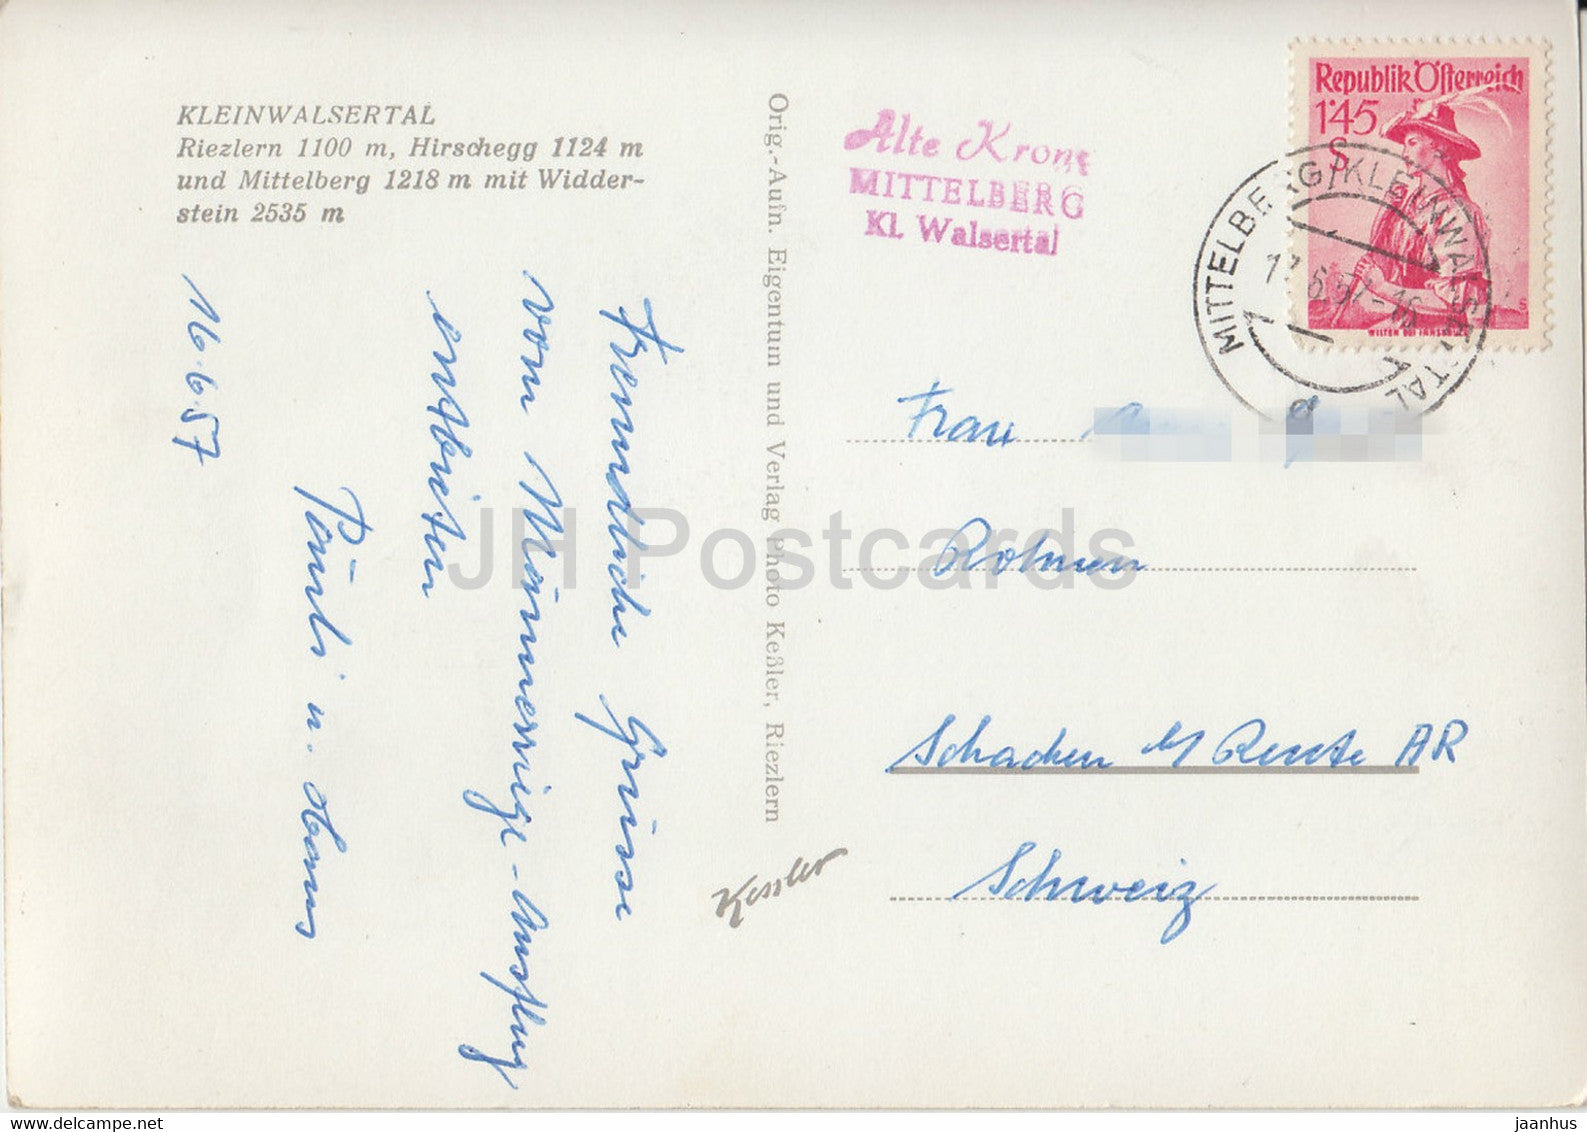 KLEINWALSERTAL
Riezlern 1100 m, Hirschegg 1124 m
und Mittelberg 1218 m mit Widder-
stein 2535 m
16.6.57
Freundliche Grüsse
vom Männerrige-Ausflug
entbieten
Päuli u. Hans
Orig.-Aufn. Eigentum und Verlag Photo Keßler, Riezlern
Kessler
Alte Krone
MITTELBERG
Kl. Walsertal
Republik Österreich
1'45
S
WILTEN BEI INNSBRUCK
MITTELBERG/KLEINWALSERTAL
Frau
Rohnen
Schachen b/ Reute AR
Schweiz
JH Postcards
www.delcampe.net
jaanhus